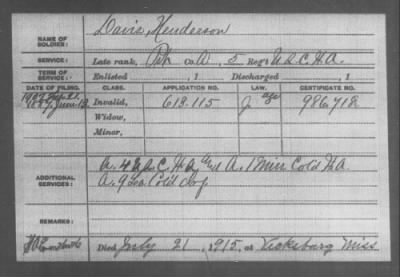 NAME OF SOLDIER: Davis, Henderson
SERVICE: Late rank, Pvt Co. A, 5 Reg't U.S.C.H.A.
TERM OF SERVICE: Enlisted , 1 Discharged , 1
DATE OF FILING. CLASS. APPLICATION NO. LAW. CERTIFICATE NO.
1887 Jun. 13 Invalid, 613.115 J age 986,718
Widow,
Minor,
ADDITIONAL SERVICES: A. 4 U.S.C.H.A. A. 1 Miss Cold H.A.
A. 9 La. Cold Inf
REMARKS:
Died July 21, 1915, at Vicksburg Miss